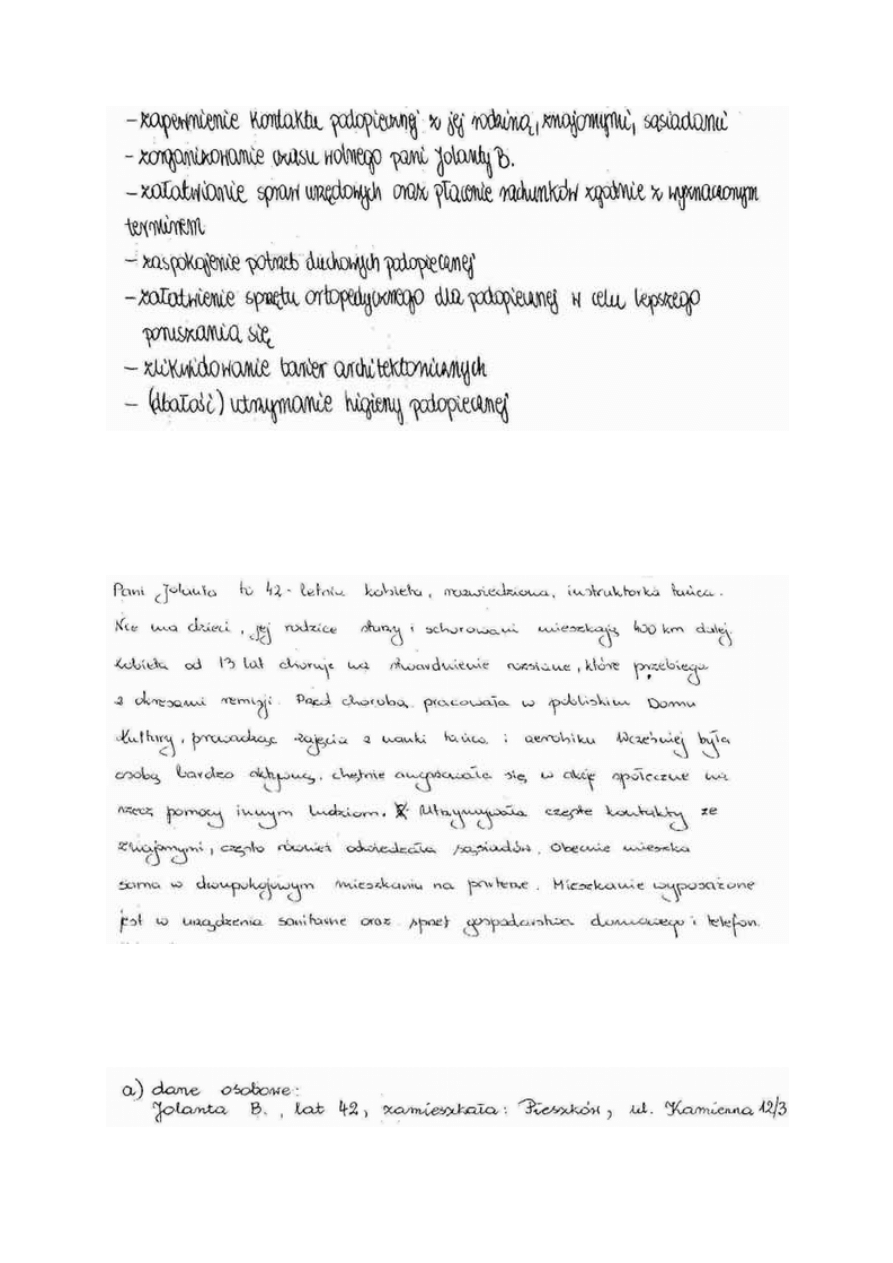 - zapewnienie kontaktu podopiecznej z jej rodziną, znajomymi, sąsiadami
- zorganizowanie czasu wolnego pani Jolanty B.
- załatwianie spraw urzędowych oraz płacenie rachunków zgodnie z wyznaczonym
terminem
- zaspokojenie potrzeb duchowych podopiecznej
- załatwienie sprzętu ortopedycznego dla podopiecznej w celu lepszego
poruszania się
- zlikwidowanie barier architektonicznych
- (dbałość) utrzymanie higieny podopiecznej
Pani Jolanta to 42-letnia kobieta, rozwiedziona, instruktorka tańca.
Nie ma dzieci, jej rodzice starzy i schorowani mieszkają 400 km dalej.
Kobieta od 13 lat choruje na stwardnienie rozsiane, które przebiega
z okresami remisji. Przed chorobą pracowała w pobliskim Domu
Kultury, prowadząc zajęcia z nauki tańca i aerobiku. Wcześniej była
osobą bardzo aktywną, chętnie angażowała się w akcje społeczne na
rzecz pomocy innym ludziom. Utrzymywała częste kontakty ze
znajomymi, często również odwiedzała sąsiadów. Obecnie mieszka
sama w dwupokojowym mieszkaniu na parterze. Mieszkanie wyposażone
jest w urządzenia sanitarne oraz sprzęt gospodarstwa domowego i telefon.
a) dane osobowe:
Jolanta B., lat 42, zamieszkała: Pieszków, ul. Kamienna 12/3